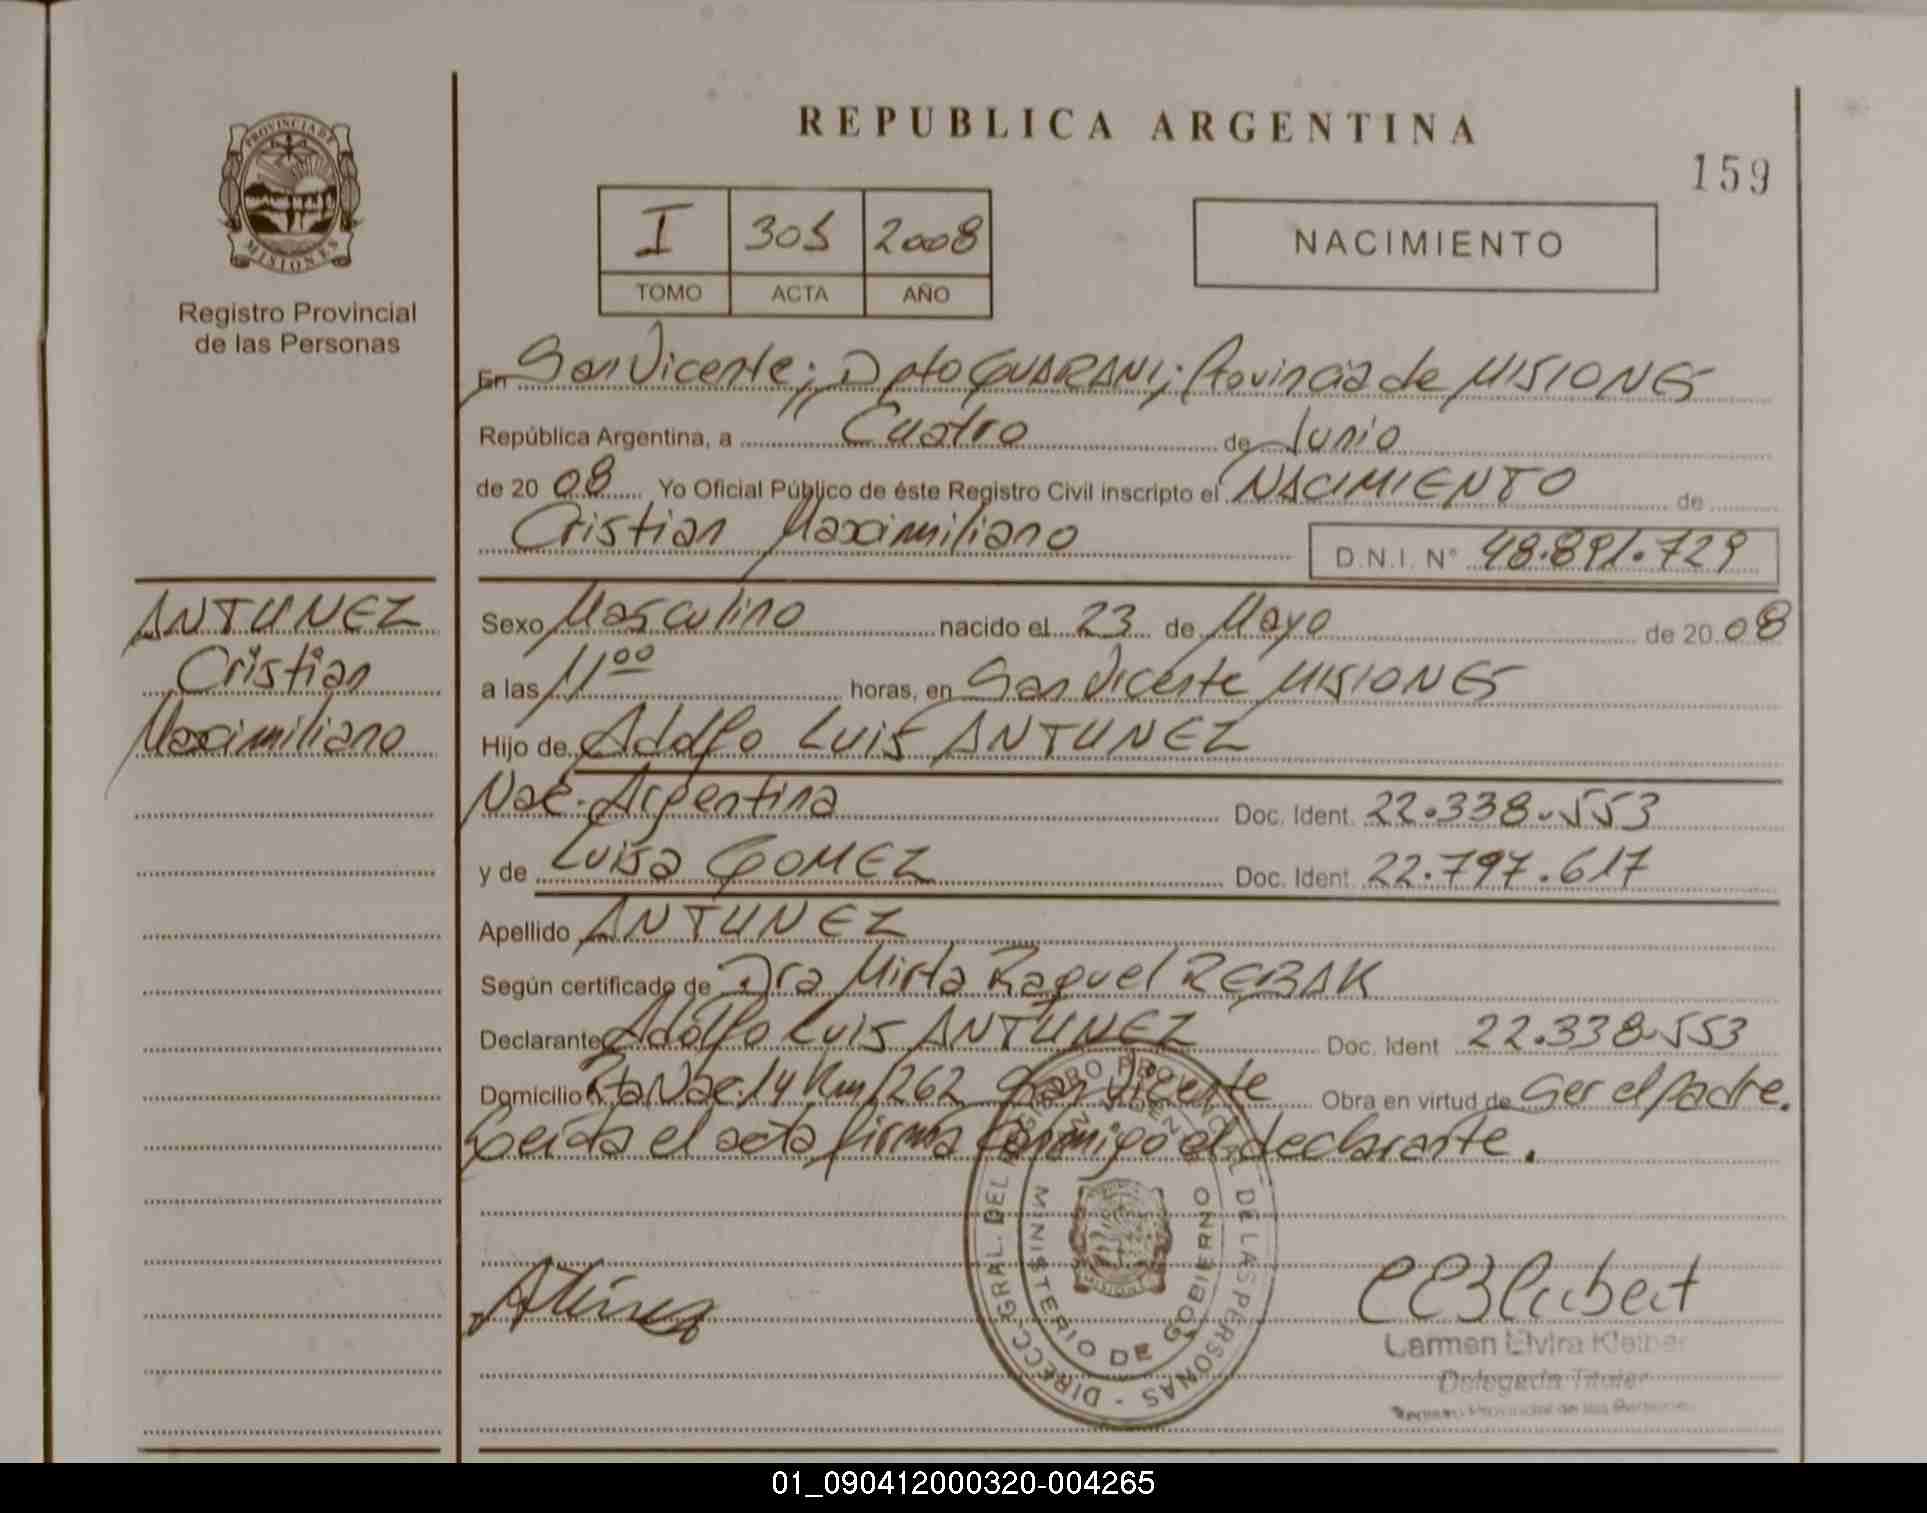 PROVINCIA DE
MISIONES
Registro Provincial
de las Personas
REPUBLICA ARGENTINA
159
I 305 2008
TOMO ACTA AÑO
NACIMIENTO
En San Vicente; Dpto GUARANI; Provincia de MISIONES
República Argentina, a Cuatro de Junio
de 20 08 Yo Oficial Público de éste Registro Civil inscripto el NACIMIENTO de
Cristian Maximiliano D.N.I. N° 48.891.729
ANTUNEZ
Cristian
Maximiliano
Sexo Masculino nacido el 23 de Mayo de 20 08
a las 11 00 horas, en San Vicente MISIONES
Hijo de Adolfo Luis ANTUNEZ
Nac. Argentina Doc. Ident. 22.338.553
y de Luisa GOMEZ Doc. Ident. 22.797.617
Apellido ANTUNEZ
Según certificado de Dra Mirta Raquel REBAK
Declarante Adolfo Luis ANTUNEZ Doc. Ident 22.338.553
Domicilio Rta Nac. 14 Km 1262 San Vicente Obra en virtud de ser el padre.
Leida el acta firma conmigo el declarante.
DIRECC. GRAL. DEL REGISTRO PROVINCIAL DE LAS PERSONAS -
MINISTERIO DE GOBIERNO
Carmen Elvira Kleiber
Delegada Titular
Registro Provincial de las Personas
01_090412000320-004265